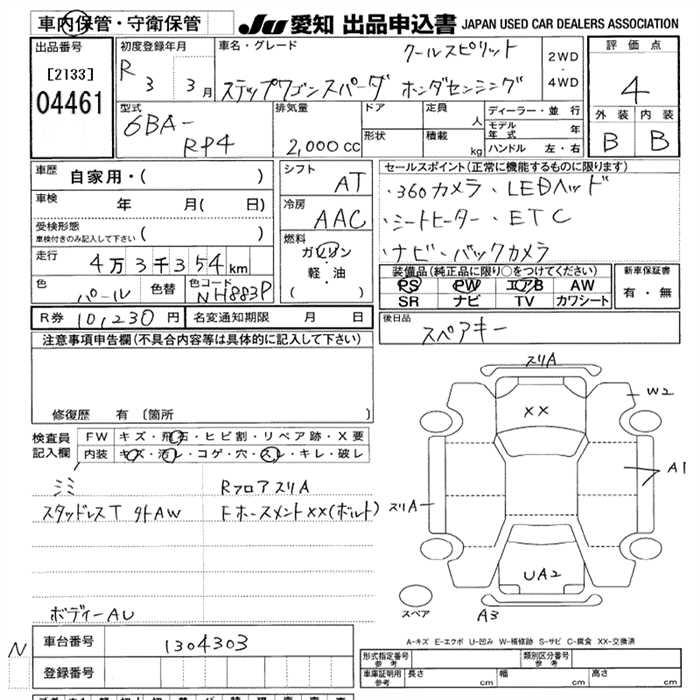 車内保管・守衛保管
JU 愛知 出品申込書 JAPAN USED CAR DEALERS ASSOCIATION
出品番号
[2133]
04461
初度登録年月
R 3 3月
車名・グレード
クールスピリット
ステップワゴンスパーダ ホンダセンシング
2WD
・
4WD
評価点
4
外装 内装
B B
型式
6BA-
RP4
排気量
2,000cc
ドア
形状
定員 人
積載 kg
ディーラー・並行
モデル年式 年
ハンドル 左・右
車歴 自家用・( )
車検 年 月( 日)
受検形態
車検付きのみ記入して下さい ( )
走行 4万3千354km
色 パール 色替 色コード NH883P
シフト
AT
冷房
AAC
燃料
ガソリン
・
軽・油
( )
セールスポイント(正常に機能するものに限ります)
・360カメラ・LEDヘッド
・シートヒーター・ETC
・ナビ・バックカメラ
装備品(純正品に限り○をつけてください)
PS PW エアB AW
SR ナビ TV カワシート
新車保証書
有・無
R券 10,230円 名変通知期限 月 日
後日品
スペアキー
注意事項申告欄(不具合内容等は具体的に記入して下さい)
修復歴 有〔箇所
検査員
記入欄
FW キズ・飛石・ヒビ割・リペア跡・X要
内装 キズ・汚レ・コゲ・穴・スレ・キレ・破レ
ミミ
RフロアスリA
スタッドレスT 外AW
Fホースメント××(ボルト)
ボディーAU
スリA
××
W2
A1
スリA
UA2
A3
スペア
A-キズ E-エクボ U-凹み W-補修跡 S-サビ C-腐食 XX-交換済
N
車台番号 1304303
登録番号
形式指定番号
参考
類別区分番号
参考
車庫証明用
参考
長さ cm
幅 cm
高さ cm